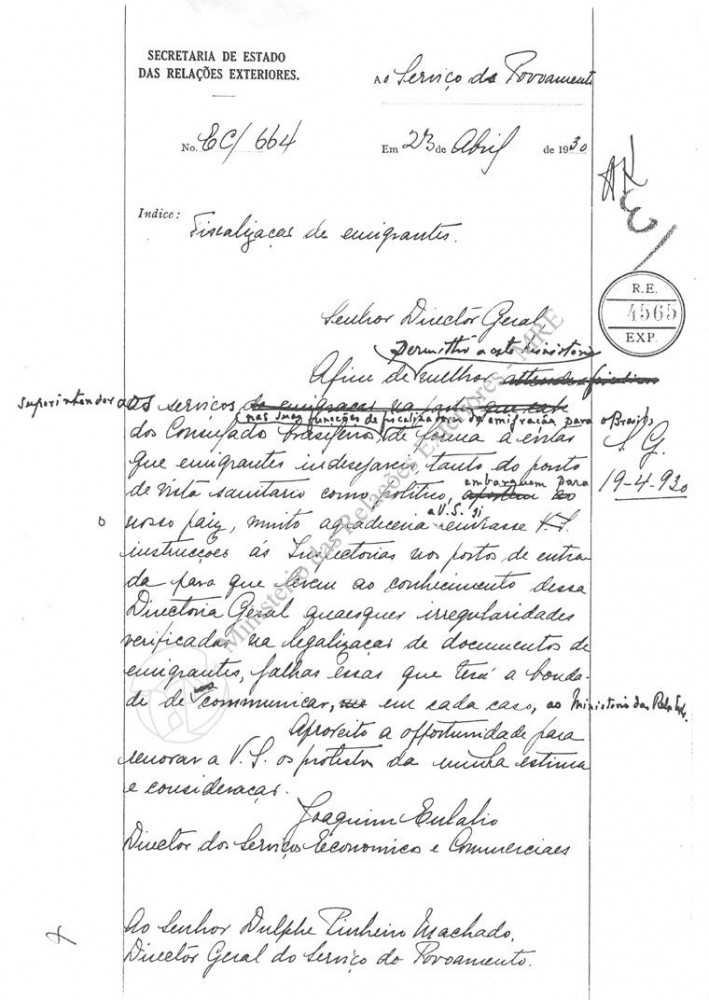 SECRETARIA DE ESTADO
DAS RELAÇÕES EXTERIORES.
AO Serviço do Povoamento
No. EC/664
Em 23 de Abril de 1930
Indice: Fiscalizaçao de emigrantes.
R.E.
4565
EXP.
Senhor Director Geral,
permittir a este Ministerio
Afim de melhor
superintender aos serviços de emigraçao na parte que cabe
nas suas funcções de fiscalizadores da emigração para o Brasil,
dos Consulado brasileiros de forma a evitar
S. G.
19-4-930
que emigrantes indesejaveis tanto do ponto
de vista sanitario como politico, embarquem para
o nosso paiz, muito agradeceria a V.S. si enviasse V.S.
instrucções ás Inspectorias nos portos de entra
da para que levem ao conhecimento dessa
Directoria Geral quaesquer irregularidades
verificadas na legalizaçao de documentos de
emigrantes, falhas essas que terá a bonda-
de de communicar, em cada caso, ao Ministerio das Rel. Ext.
Aproveito a opportunidade para
renovar a V. S. os protestos da minha estima
e consideraçao.
Joaquim Eulalio
Director dos Serviços Economicos e Commerciaes
Ao Senhor Dulphe Pinheiro Machado,
Director Geral do Serviço do Povoamento.
Ministério das Relações Exteriores - MRE